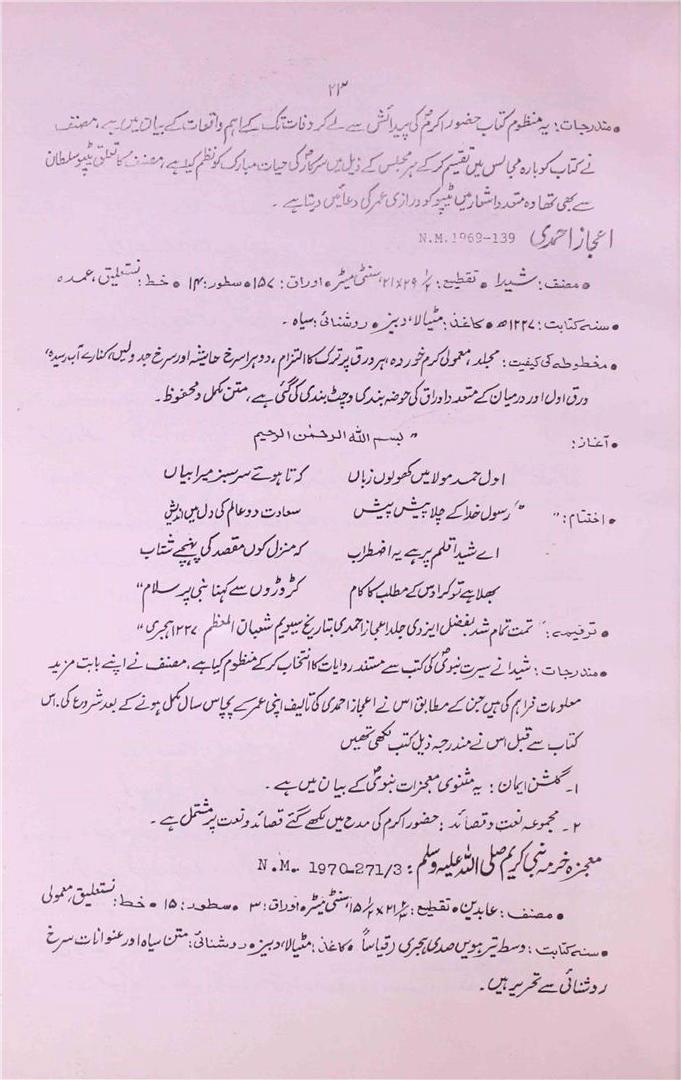 ۲۳
• مندرجات: یہ منظوم کتاب حضور اکرمؐ کی پیدائش سے لے کر وفات تک کے اہم واقعات کے بیان میں ہے، مصنف
نے کتاب کو بارہ مجالس میں تقسیم کر کے ہر مجلس کے ذیل میں سرکارؐ کی حیات مبارک کو نظم کیا ہے، مصنف کا تعلق ٹیپو سلطان
سے بھی تھا وہ متعدد اشعار میں ٹیپو کو درازی عمر کی دعائیں دیتا ہے۔
اعجاز احمدی N.M.1969-139
• مصنف: شیدا • تقطیع: ۲۹×۲۱ سنٹی میٹر • اوراق: ۱۵۷ • سطور: ۱۴ • خط: نستعلیق، عمدہ
• سنہ کتابت: ۱۲۲۷ھ • کاغذ: مٹیالا، دبیز • روشنائی: سیاہ۔
• مخطوطہ کی کیفیت: مجلد، معمولی کرم خوردہ، ہر ورق پر ترک کا التزام، دوہرا سرخ حاشیہ اور سرخ جدولیں، کنارے آب رسیدہ،
ورق اول اور درمیان کے متعدد اوراق کی حوضہ بندی و چٹ بندی کی گئی ہے، متن مکمل و محفوظ۔
• آغاز: " بسم اللہ الرحمٰن الرحیم
اول حمد مولا میں کھولوں زباں کہ تا ہوئے سرسبز میرا بیاں
• اختتام: " رسول خدا کے چلا پیش پیش سعادت دو عالم کی دل میں اندیش
اے شیدا قلم پر ہے یہ اضطراب کہ منزل کوں مقصد کی پہنچے شتاب
بھلا ہے تو کر اوس کے مطلب کا کام کڑوڑوں سے کہنا نبی پر سلام"
• ترقیمہ: " تمت تمام شد بفضل ایزدی جلد اعجاز احمدی بتاریخ سیویم شعبان المعظم ۱۲۲۷ ہجری"
• مندرجات: شیدا نے سیرت نبویؐ کی کتب سے مستند روایات کا انتخاب کر کے منظوم کیا ہے، مصنف نے اپنے بابت مزید
معلومات فراہم کی ہیں جن کے مطابق اس نے اعجاز احمدی کی تالیف اپنی عمر کے پچاس سال مکمل ہونے کے بعد شروع کی۔ اس
کتاب سے قبل اس نے مندرجہ ذیل کتب لکھی تھیں
۱۔ گلشن ایمان: یہ مثنوی معجزات نبویؐ کے بیان میں ہے۔
۲۔ مجموعہ نعت و قصائد: حضور اکرم کی مدح میں لکھے گئے قصائد و نعت پر مشتمل ہے۔
معجزہ خرمہ نبی کریم صلی اللہ علیہ وسلم: N.M. 1970-271/3
• مصنف: عابدین • تقطیع: سنٹی میٹر • اوراق: ۳ • سطور: ۱۵ • خط: نستعلیق، معمولی
• سنہ کتابت: وسط تیرہویں صدی ہجری (قیاساً) • کاغذ: مٹیالا، دبیز • روشنائی: متن سیاہ اور عنوانات سرخ
روشنائی سے تحریر ہیں۔